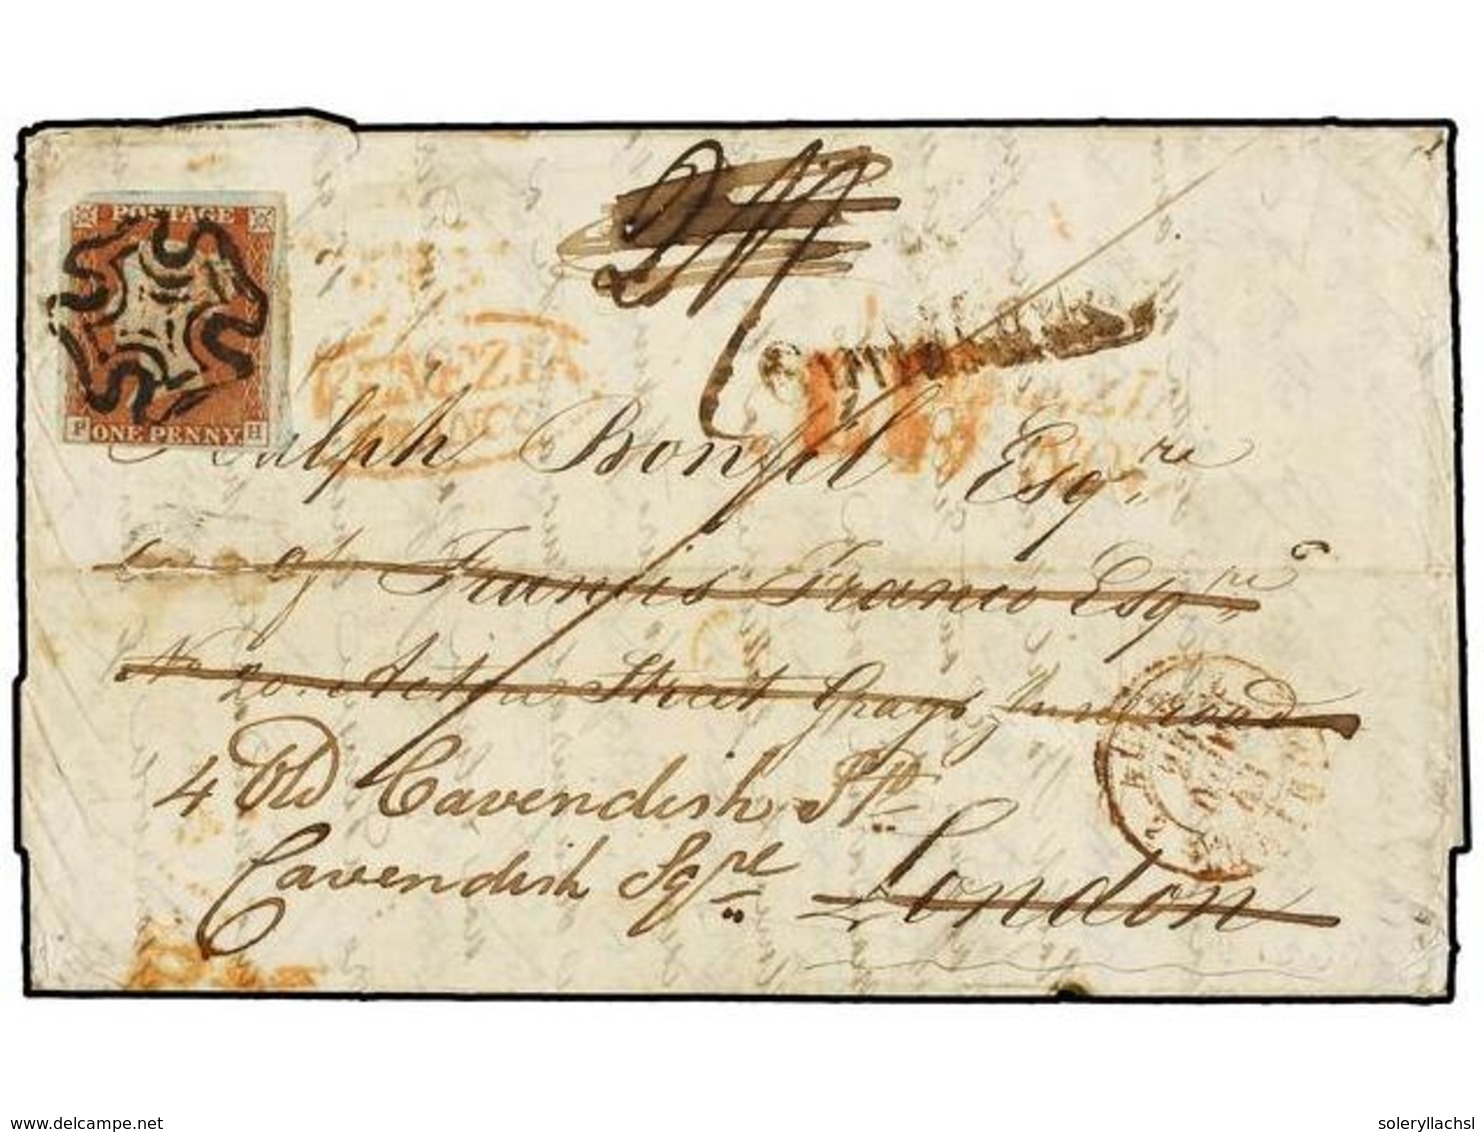 POSTAGE
P ONE PENNY H
VENEZIA
Ralph Bonfil Esqre
of Francis Franco Esqre
No 20 Street Grays Inn road
4 Old Cavendish St
Cavendish Sqre London
www.delcampe.net
soleryllachsl